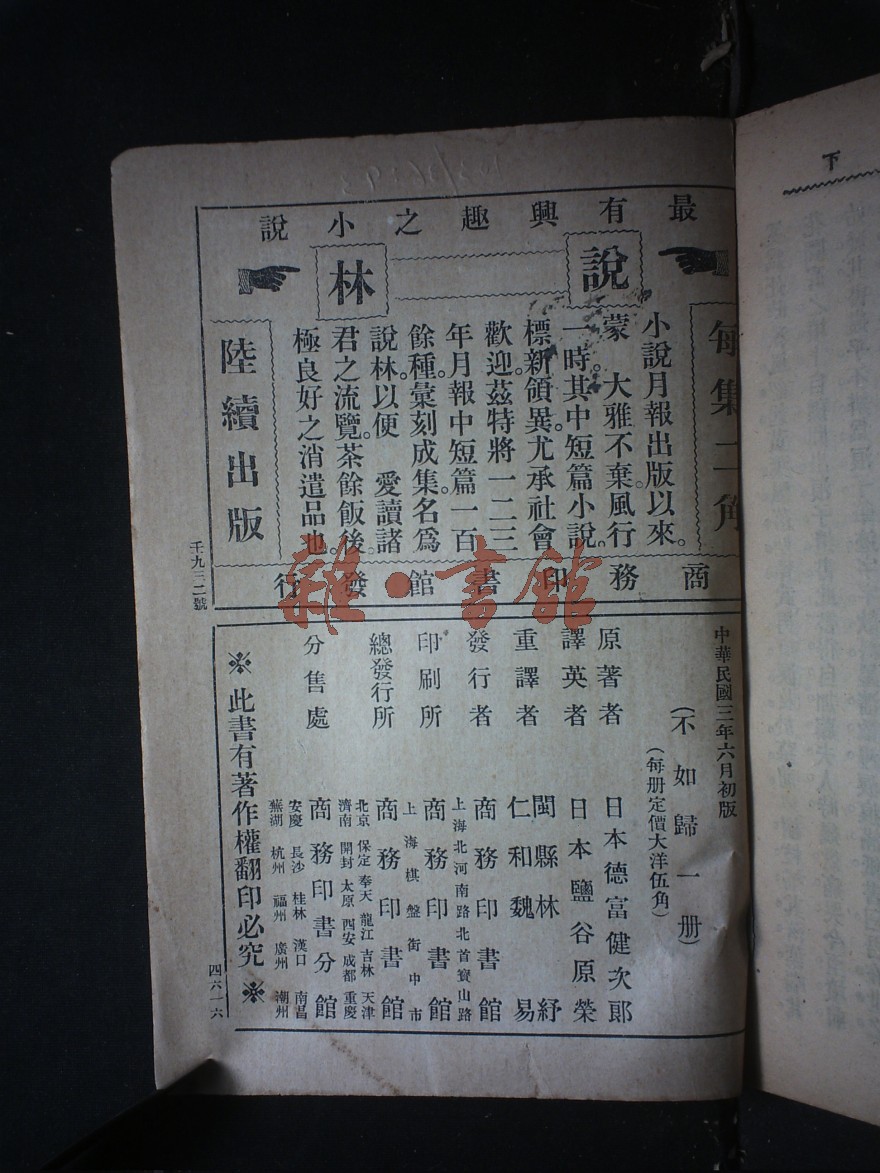 最有興趣之小說
說林
每集二角
小說月報出版以來。
蒙　大雅不棄風行
一時。其中短篇小說。
標新領異。尤承社會
歡迎。茲特將一二三
年月報中短篇一百
餘種。彙刻成集。名爲
說林以便　愛讀諸
君之流覽。茶餘飯後。
極良好之消遣品也。
陸續出版
商務印書館發行
壬九三二號
雜·書館
中華民國三年六月初版
(不如歸一册)
(每册定價大洋伍角)
原著者　日本德富健次郎
譯英者　日本鹽谷原榮
重譯者　閩縣林紓
仁和魏易
發行者　商務印書館
上海北河南路北首寶山路
印刷所　商務印書館
上海棋盤街中市
總發行所　商務印書館
北京　保定　奉天　龍江　吉林　天津
濟南　開封　太原　西安　成都　重慶
分售處　商務印書分館
安慶　長沙　桂林　漢口　南昌
蕪湖　杭州　福州　廣州　潮州
※此書有著作權翻印必究※
四六一六
下